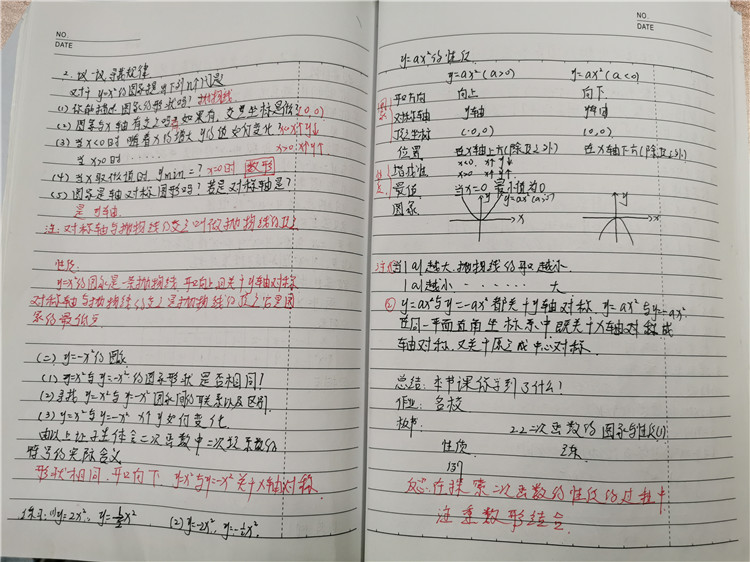 NO.
DATE
2. 议一议 寻找规律
对于 y=x²的图象提以下的几个问题
(1) 你能描述图象的形状吗? 抛物线
(2) 图象与x轴有交点吗? 如果有,交点坐标是什么? (0,0)
(3) 当x<0时 随着x的增大 y的值如何变化 x<0 x↑y↓
当x>0时 ······ x>0 x↑y↑
(4) 当x取什么值时, y min=? x=0时 数形
(5) 图象是轴对称图形吗? 若是对称轴是?
是 y轴
注: 对称轴与抛物线的交点叫做抛物线的顶点
性质:
y=x²的图象是一条抛物线, 开口向上且关于y轴对称
对称轴与抛物线的交点是抛物线的顶点 它是图
象的最低点
(二) y=-x²的图象
(1) y=x²与y=-x²的图象形状是否相同!
(2) 寻找 y=x²与y=-x²图象间的联系以及区别
(3) y=x²与y=-x² x个y如何变化
由以上 学生体会二次函数中二次项系数的
符号的实际含义
形状相同, 开口向下 y=x²与y=-x²关于x轴对称
练习: (1) y=2x², y=½x² (2) y=-2x², y=-½x².
NO.
DATE
y=ax²的性质
y=ax²(a>0) y=ax²(a<0)
开口方向 向上 向下
对称轴 y轴 y轴
顶点坐标 (0,0) (0,0)
位置 在x轴上方(除顶点外) 在x轴下方(除顶点外)
增减性 x<0, x↑ y↓
x>0 x↑ y↑
最值 当x=0 最小值为0
图象 y y=ax²(a>0) x y x
注: ①当|a|越大,抛物线的开口越小
|a|越小 ······ 大
② y=ax²与y=-ax²都关于y轴对称, y=ax²与y=-ax²
在同一平面直角坐标系中,既关于x轴对称成
轴对称,又关于原点成中心对称.
总结: 本节课你学到了什么!
作业: 名校
板书: 2.2 二次函数的图象与性质(1)
性质
例
反思: 在探索二次函数的性质的过程中
注重数形结合